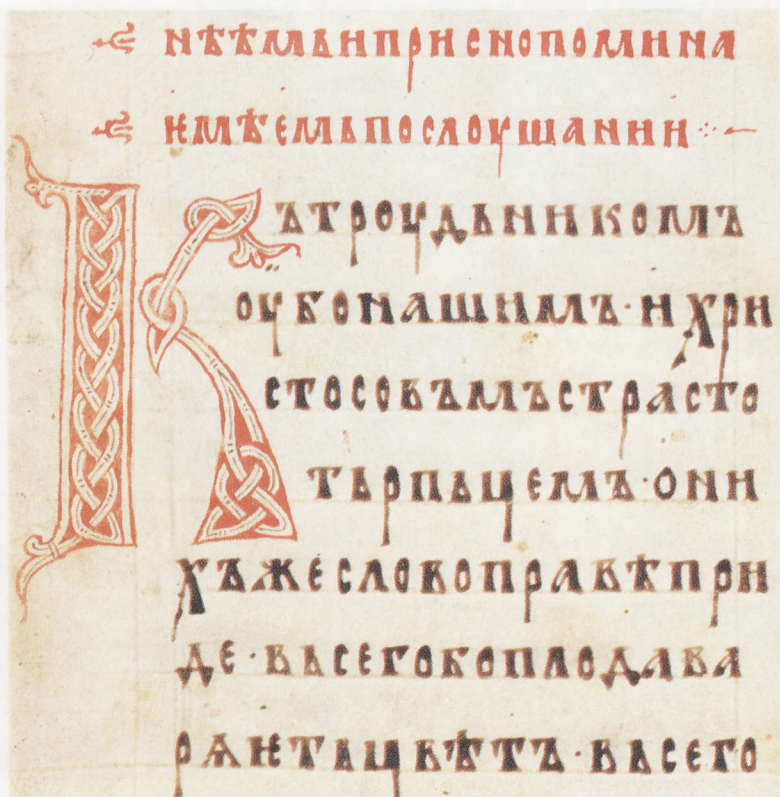 нѣѣмьнприснопомина
ѥмѣемьпослоушании
Кътроудьникомъ
оубонашимъ·ихри
стосовъмъстрасто
тьрпьцемъ·они
хъжесловоправѣпри
де·вьсегобоплодава
рѧѥтьцвѣтъ·вьсего